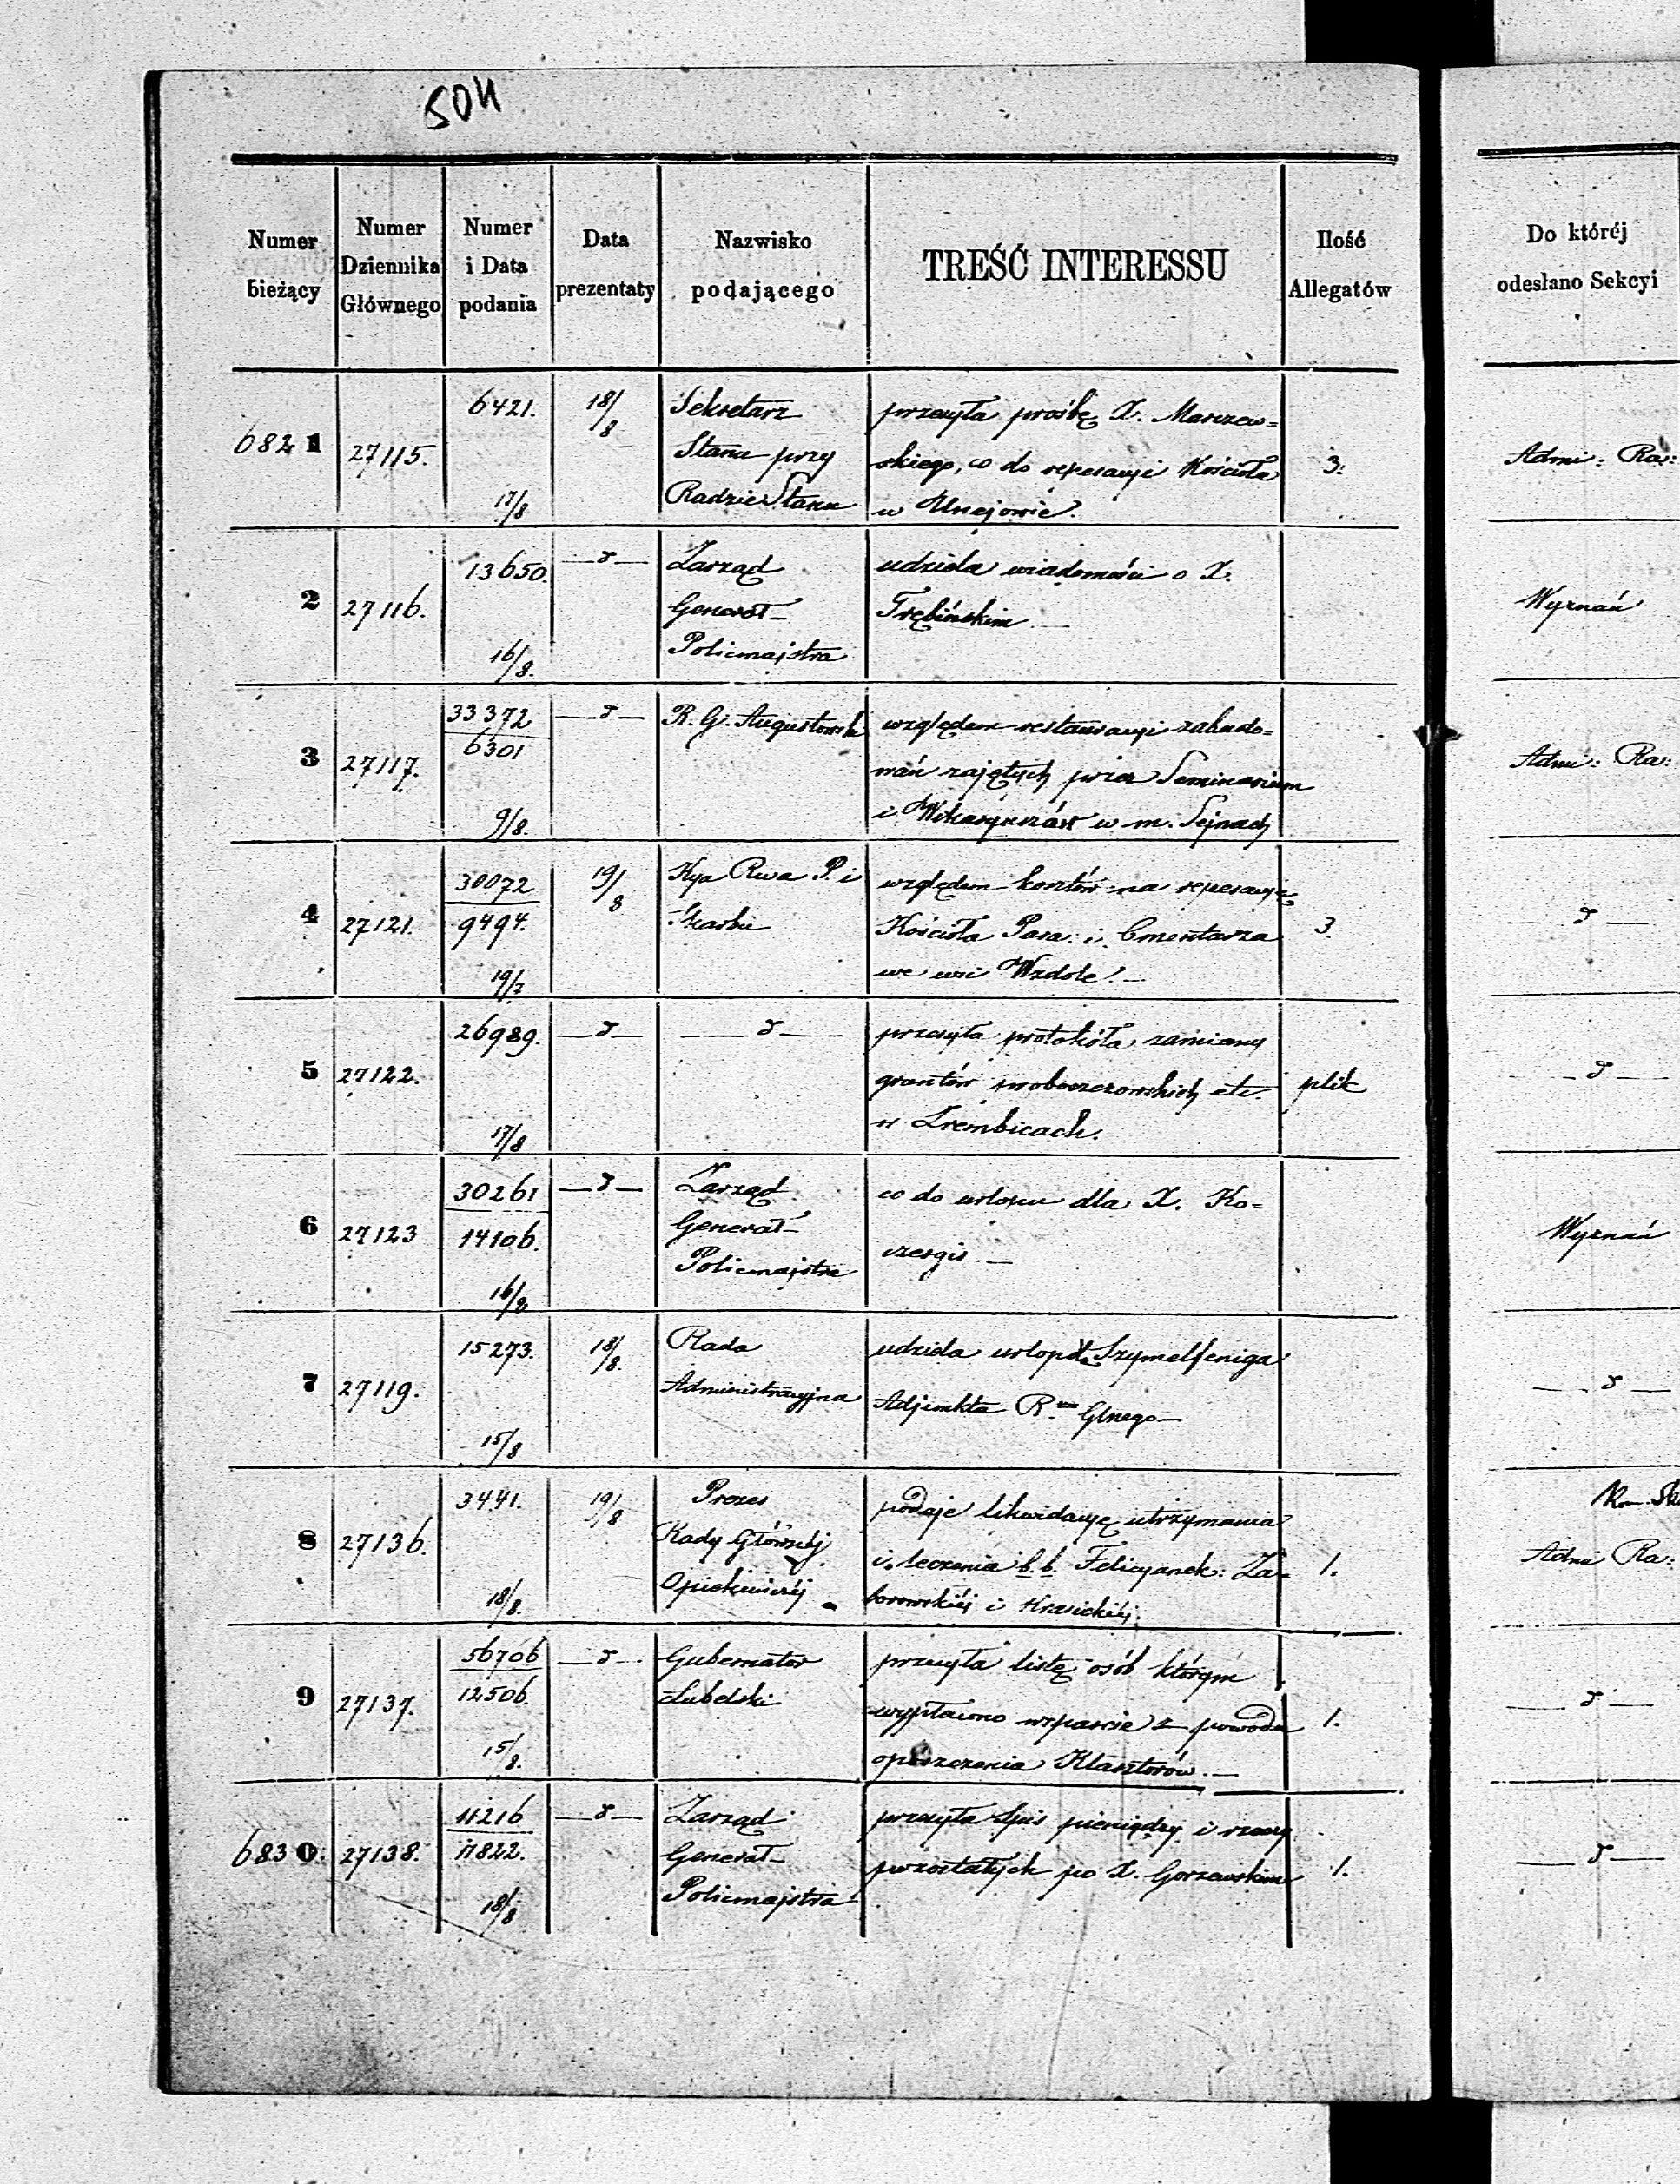 504
Numer bieżący
Numer Dziennika Głównego
Numer i Data podania
Data prezentaty
Nazwisko podającego
TREŚĆ INTERESSU
Ilość Allegatów
Do której odesłano Sekcyi
6421. 18/8 Sekretarz przesyła prośbę X. Marczew=
6821 27115. Stanu przy skiego, co do reperacyi Kościoła 3. Admi: Ra:
17/8 Radzie Stanu w Uniejowie.
13650. —d— Zarząd udziela wiadomości o X.
2 27116. Generał— Trębińskim. — Wyznań
16/8. Policmajstra
33372 —d— R. G. Augustowsk względem restauracyi zabudo=
6301
3 27117. wań zajętych przez Seminarium Admi: Ra:
9/8. i Wikaryuszów w m. Sejnach
30072 19/8 Kya Rwa P. i względem kosztów na reperacyę
4 27121. 9494. Skarbu Kościoła Para: i Cmentarza 3. — d —
19/7 we wsi Wzdole. —
26989. —d— — d — przesyła protokóła zamiany
5 27122. gruntów proboszczowskich etc. plik — d —
17/8 w Trembicach.
30261 —d— Zarząd co do urlopu dla X. Ko=
6 27123 14106. Generał— czergis. — Wyznań
16/8 Policmajstra
15273. 18/8. Rada udziela urlop dla Szymelfeniga
7 27119. Administracyjna Adjunkta Glnego — — d —
15/8
3441. 19/8 Prezes podaje likwidacyę utrzymania
8 27136. Rady Głównéj i leczenia b. b. Felicyanek: Za= 1. Admi Ra:
18/8. Opiekuńczéj borowskiéj i Krasickiéj.
56706 —d— Gubernator przesyła listę osób którym
9 27137. 12506. Lubelski wypłacono wsparcie z powodu 1. — d —
15/8. opuszczenia Klasztorów. —
11216 —d— Zarząd przesyła Spis pieniędzy i rzeczy
6830. 27138. 11822. Generał— pozostałych po X. Gorzewskim 1. — d —
18/8 Policmajstra